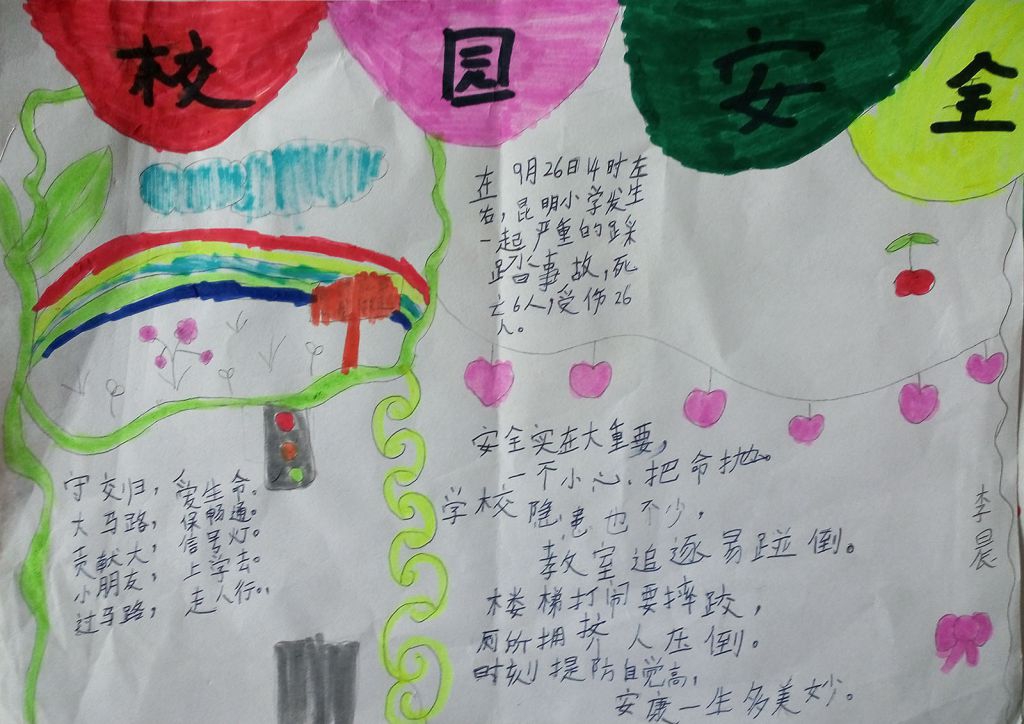 校园安全
在9月26日14时左
右,昆明小学发生
一起严重的踩
踏事故,死
亡6人,受伤26
人。
安全实在大重要,
一不小心,把命抛。
学校隐患也不少,
教室追逐易碰倒。
楼梯打闹要摔跤,
厕所拥挤人压倒。
时刻提防自觉高,
安康一生多美妙。
守交归,爱生命。
大马路,保畅通。
贡献大,信号灯。
小朋友,上学去。
过马路,走人行。
李晨